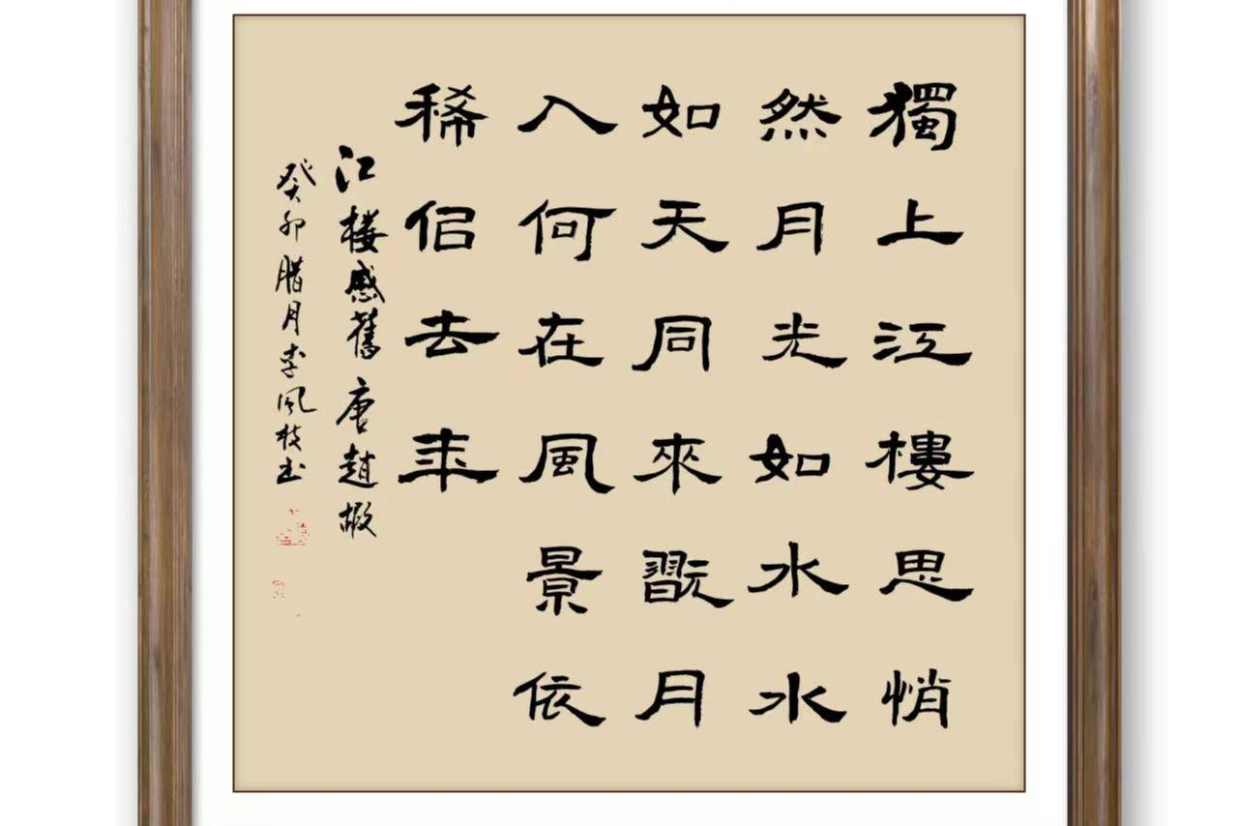 獨上江樓思悄
然月光如水水
如天同來翫月
人何在風景依
稀佀去年
江楼感舊唐趙嘏
癸卯腊月李風枝书